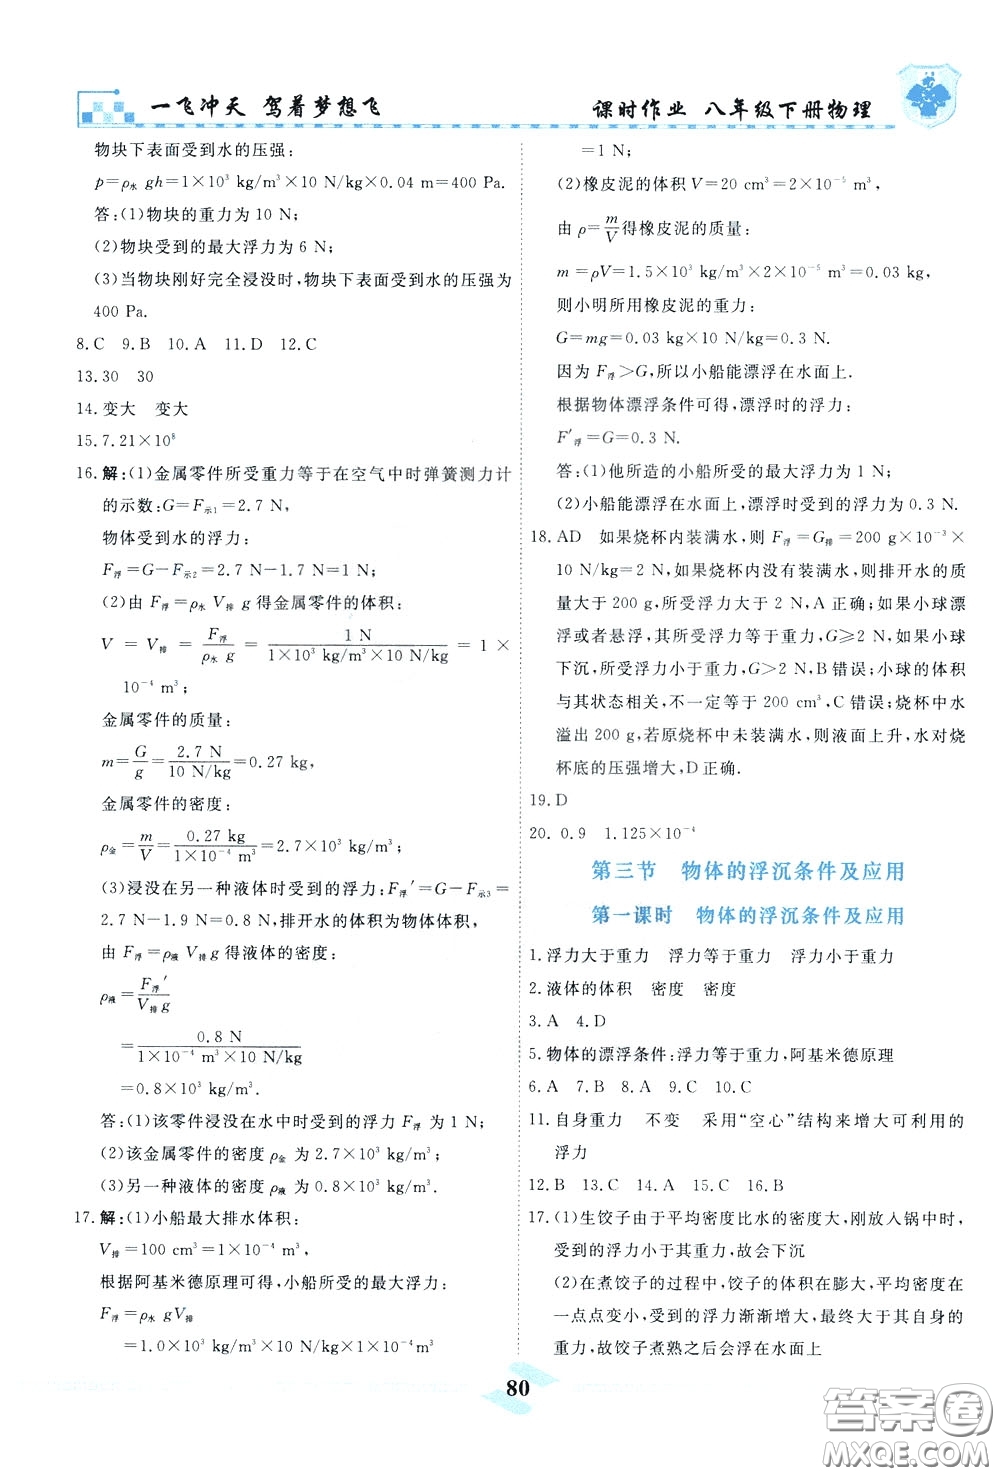 一飞冲天 驾着梦想飞
课时作业 八年级下册物理
物块下表面受到水的压强:
p=ρ水 gh=1×10³ kg/m³×10 N/kg×0.04 m=400 Pa.
答:(1)物块的重力为10 N;
(2)物块受到的最大浮力为6 N;
(3)当物块刚好完全浸没时,物块下表面受到水的压强为
400 Pa.
8.C 9.B 10.A 11.D 12.C
13.30 30
14.变大 变大
15.7.21×10⁸
16.解:(1)金属零件所受重力等于在空气中时弹簧测力计
的示数:G=F示1=2.7 N,
物体受到水的浮力:
F浮=G−F示2=2.7 N−1.7 N=1 N;
(2)由 F浮=ρ水 V排 g得金属零件的体积:
V = V排 = F浮/ρ水 g = 1 N/1×10³ kg/m³×10 N/kg = 1 ×
10⁻⁴ m³;
金属零件的质量:
m=G/g=2.7 N/10 N/kg=0.27 kg,
金属零件的密度:
ρ金=m/V=0.27 kg/1×10⁻⁴ m³=2.7×10³ kg/m³;
(3)浸没在另一液体时受到的浮力:F浮′=G−F示3=
2.7 N−1.9 N=0.8 N,排开水的体积为物体体积,
由 F浮=ρ液 V排g得液体的密度:
ρ液=F浮′/V排 g
=0.8 N/1×10⁻⁴ m³×10 N/kg
=0.8×10³ kg/m³.
答:(1)该零件浸没在水中时受到的浮力 F浮 为 1 N;
(2)该金属零件的密度 ρ金 为 2.7×10³ kg/m³;
(3)另一种液体的密度 ρ液 为 0.8×10³ kg/m³.
17.解:(1)小船最大排水体积:
V排=100 cm³=1×10⁻⁴ m³,
根据阿基米德原理可得,小船所受的最大浮力:
F浮=ρ水 gV排
=1.0×10³ kg/m³×10 N/kg×1×10⁻⁴ m³
=1 N;
(2)橡皮泥的体积V=20 cm³=2×10⁻⁵ m³,
由 ρ=m/V得橡皮泥的质量:
m=ρV=1.5×10³ kg/m³×2×10⁻⁵ m³=0.03 kg,
则小明所用橡皮泥的重力:
G=mg=0.03 kg×10 N/kg=0.3 N.
因为 F浮>G,所以小船能漂浮在水面上.
根据物体漂浮条件可得,漂浮时的浮力:
F′浮=G=0.3 N.
答:(1)他所造的小船所受的最大浮力为1 N;
(2)小船能漂浮在水面上,漂浮时受到的浮力为0.3 N.
18.AD 如果烧杯内装满水,则 F浮=G排=200 g×10⁻³×
10 N/kg=2 N,如果烧杯内没有装满水,则排开水的质
量大于200 g,所受浮力大于2 N,A正确;如果小球漂
浮或者悬浮,其所受浮力等于重力,G⩾2 N,如果小球
下沉,所受浮力小于重力,G>2 N,B错误;小球的体积
与其状态相关,不一定等于200 cm³,C错误;烧杯中水
溢出200 g,若原烧杯中未装满水,则液面上升,水对烧
杯底的压强增大,D正确.
19.D
20.0.9 1.125×10⁻⁴
第三节 物体的浮沉条件及应用
第一课时 物体的浮沉条件及应用
1.浮力大于重力 浮力等于重力 浮力小于重力
2.液体的体积 密度 密度
3.A 4.D
5.物体的漂浮条件:浮力等于重力,阿基米德原理
6.A 7.B 8.A 9.C 10.C
11.自身重力 不变 采用“空心”结构来增大可利用的
浮力
12.B 13.C 14.A 15.C 16.B
17.(1)生饺子由于平均密度比水的密度大,刚放入锅中时,
受到的浮力小于其重力,故会下沉
(2)在煮饺子的过程中,饺子的体积在膨大,平均密度在
一点点变小,受到的浮力渐渐增大,最终大于其自身的
重力,故饺子煮熟之后会浮在水面上
80
答案圈
MXQE.COM